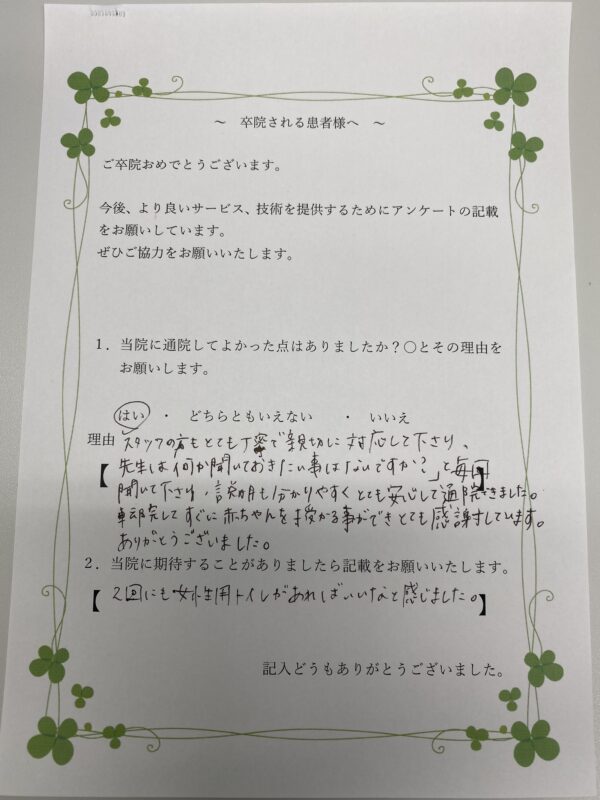 ～ 卒院される患者様へ ～
ご卒院おめでとうございます。
今後、より良いサービス、技術を提供するためにアンケートの記載
をお願いしています。
ぜひご協力をお願いいたします。
１．当院に通院してよかった点はありましたか？○とその理由を
お願いします。
はい ・ どちらともいえない ・ いいえ
理由 スタッフの方もとても丁寧で親切に対応して下さり、
【先生は「何か聞いておきたい事はないですか？」と毎回】
聞いて下さり、説明も分かりやすくとても安心して通院できました。
転院してすぐに赤ちゃんを授かる事ができとても感謝しています。
ありがとうございました。
２．当院に期待することがありましたら記載をお願いいたします。
【２回にも女性用トイレがあればいいなと感じました。】
記入どうもありがとうございました。